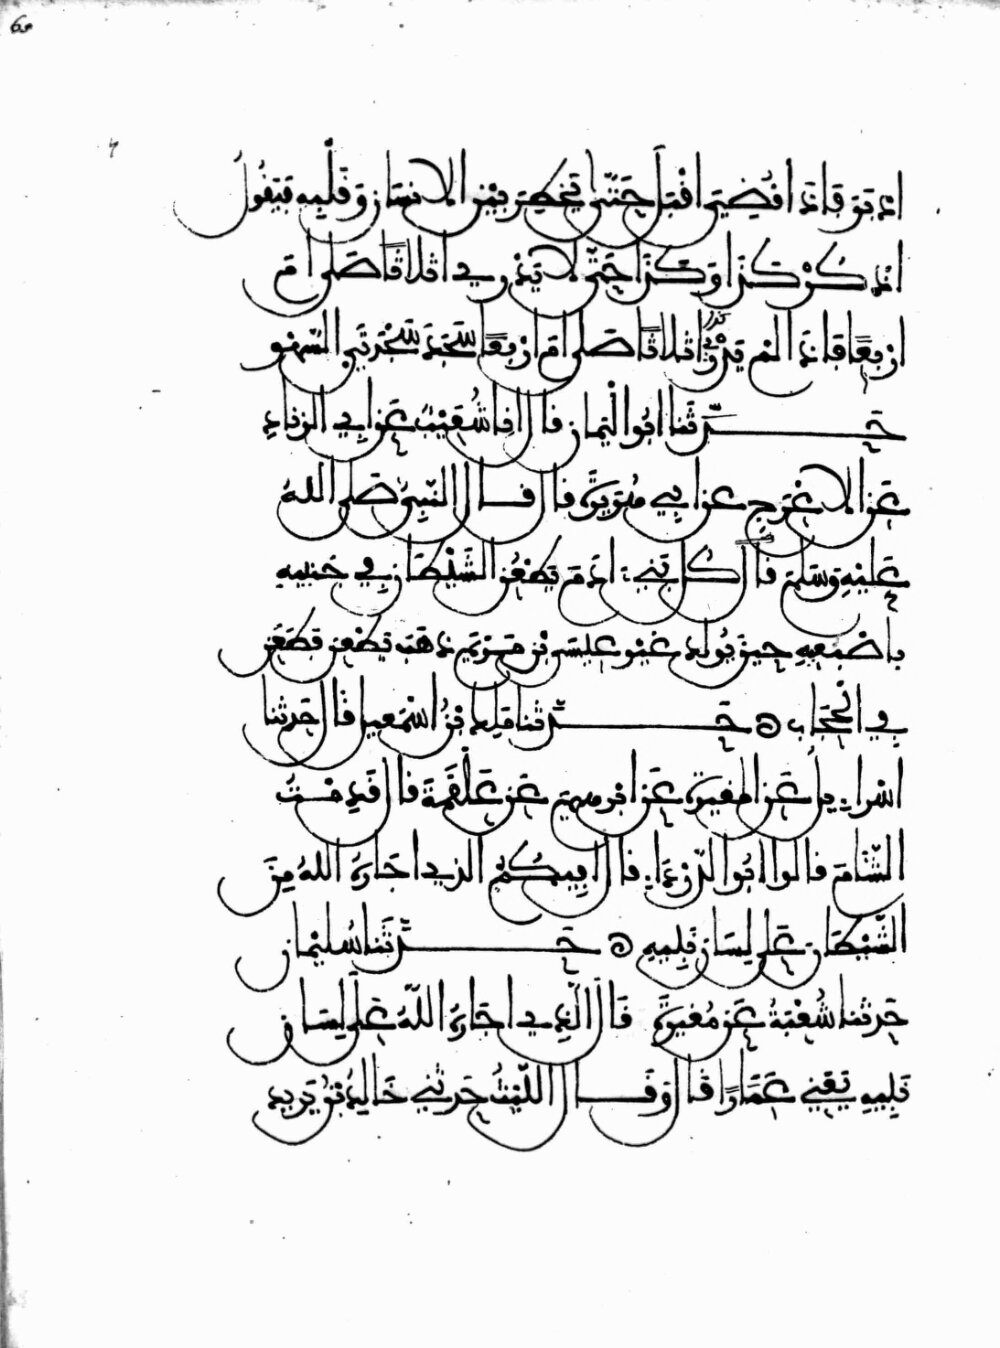 6
ادبر فاذا قضي اقبل حتى يخطر بين الانسان وقلبه فيقول
اذكر كذا وكذا حتى لا يدري اثلاثا صلى ام
اربعا فاذا لم يدر اثلاثا صلى ام اربعا سجد سجدتي السهو
حدثنا ابو اليمان قال انا شعيب عن ابي الزناد
عن الاعرج عن ابي هريرة قال قال النبي صلى الله
عليه وسلم قال كل بني ادم يطعن الشيطان في جنبيه
باصبعيه حين يولد غير عيسى بن مريم ذهب يطعن فطعن
في الحجاب ه حدثنا ملك بن اسمعيل قال حدثنا
اسراءيل عن المغيرة عن ابرهيم عن علقمة قال قدمت
الشام قالوا ابو الدرداء قال افيكم الذي اجاره الله من
الشيطان على لسان نبيه ه حدثنا سليمان
حدثنا شعبة عن مغيرة قال الذي اجاره الله على لسان
نبيه يعني عمارا قال وقال الليث حدثني خالد بن يزيد